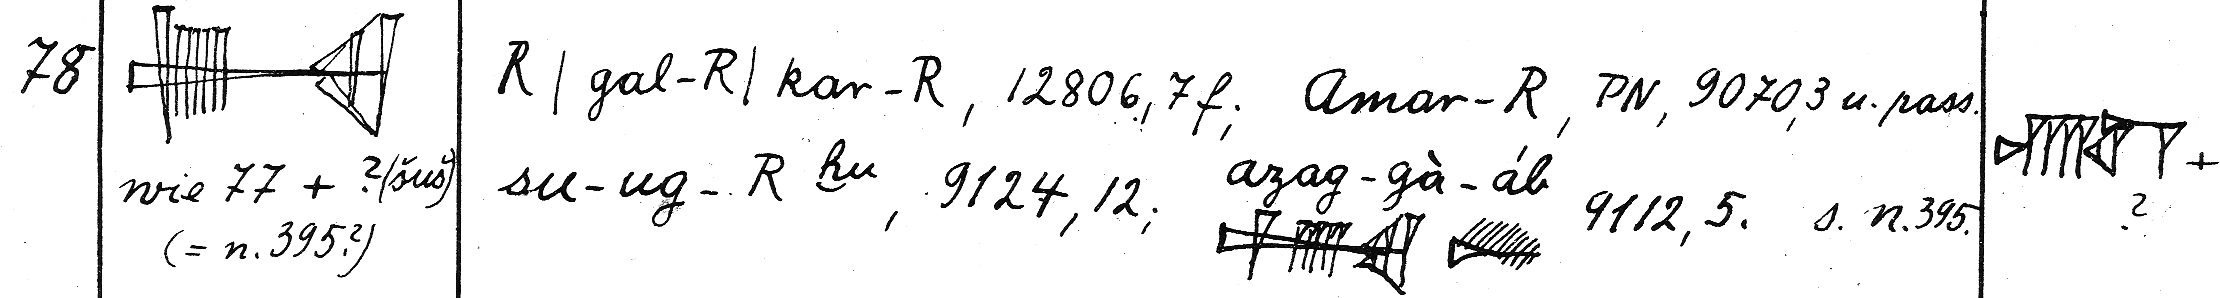 78
wie 77 + ? (šuš)
(= n. 395?)
R | gal-R | kar-R, 12806,7f; Amar-R, PN, 9070,3 u. pass.
su-ug-R ḫu, 9124,12; azag-gà-áb 9112,5. s. n. 395.
+
?